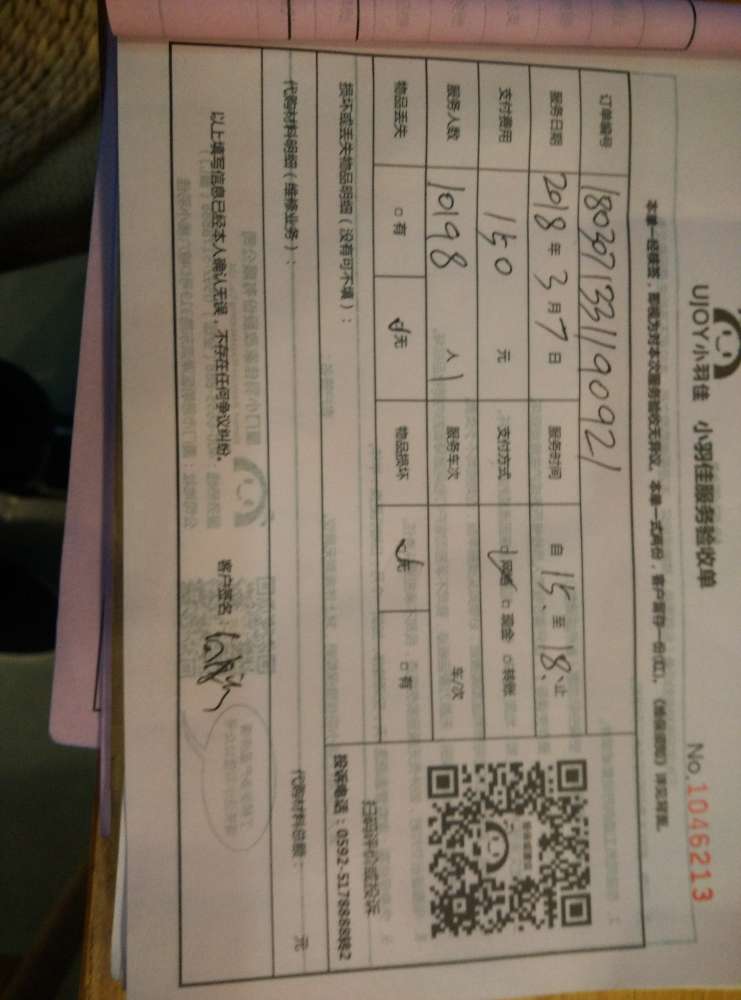 UJOY小羽佳 小羽佳服务验收单
No.1046213
本单一经签签，即视为对本次服务验收无异议，本单一式两份，客户留存一份(红)。《维保须知》详见背面。
订单编号 1803071331190921
服务日期 2018年3月7日 服务时间 自15.至18.止
支付费用 150 元 支付方式 网络 现金 转账
服务人数 10198 人 1 服务车次 车/次
物品丢失 □有 无 物品损坏 无 □有
损坏或丢失物品明细（没有可不填）：
扫码评价或投诉
投诉电话：0592-5178888转2
代购材料明细（维修业务）：
代购材料总额： 元
以上填写信息已经本人确认无误，不存在任何争议纠纷。 客户签名：